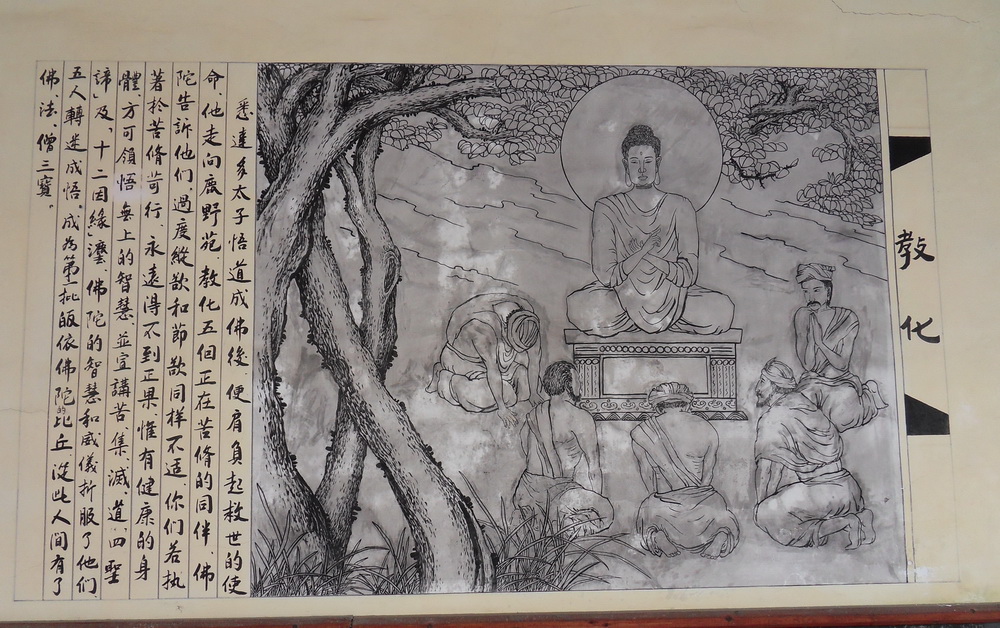 教化
悉達多太子悟道成佛後，便肩負起救世的使
命，他走向鹿野苑，教化五個正在苦脩的同伴，佛
陀告訴他們，過度縱歆和節歆同樣不适，你們若执
著於苦脩苛行，永遠得不到正果，惟有健康的身
體方可領悟無上的智慧，並宣講苦、集、滅、道「四聖
諦」及，「十二因緣」灋，佛陀的智慧和威儀折服了他們，
五人轉迷成悟，成為第一批皈依佛陀的比丘，從此人間有了
佛、法、僧三寶。